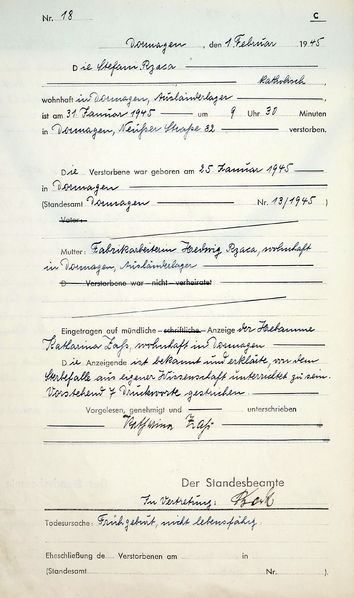 Nr. 18 C
Dormagen, den 1. Februar 1945
Die Stefani Rzaca
katholisch
wohnhaft in Dormagen, Ausländerlager
ist am 31. Januar 1945 um 9 Uhr 30 Minuten
in Dormagen, Neußer Straße 32 verstorben.
Die Verstorbene war geboren am 25. Januar 1945
in Dormagen
(Standesamt Dormagen Nr. 13/1945)
Vater:
Mutter: Fabrikarbeiterin Hedwig Rzaca, wohnhaft
in Dormagen, Ausländerlager
D Verstorbene war nicht verheiratet
Eingetragen auf mündliche schriftliche Anzeige der Hebamme
Katharina Zaß, wohnhaft in Dormagen
Die Anzeigende ist bekannt und erklärte, von dem
Sterbefalle aus eigener Wissenschaft unterrichtet zu sein.
Vorstehend 7 Druckworte gestrichen.
Vorgelesen, genehmigt und unterschrieben
Katharina Zaß
Der Standesbeamte
In Vertretung:
Todesursache: Frühgeburt, nicht lebensfähig.
Eheschließung de Verstorbenen am in
(Standesamt Nr. )